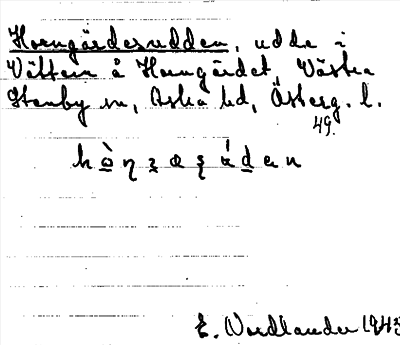 Horngärdesudden, udde i
Vättern å Horngärdet, Västra
Stenby sn, Aska hd, Österg. l.
49.
E. Nordlander 1943